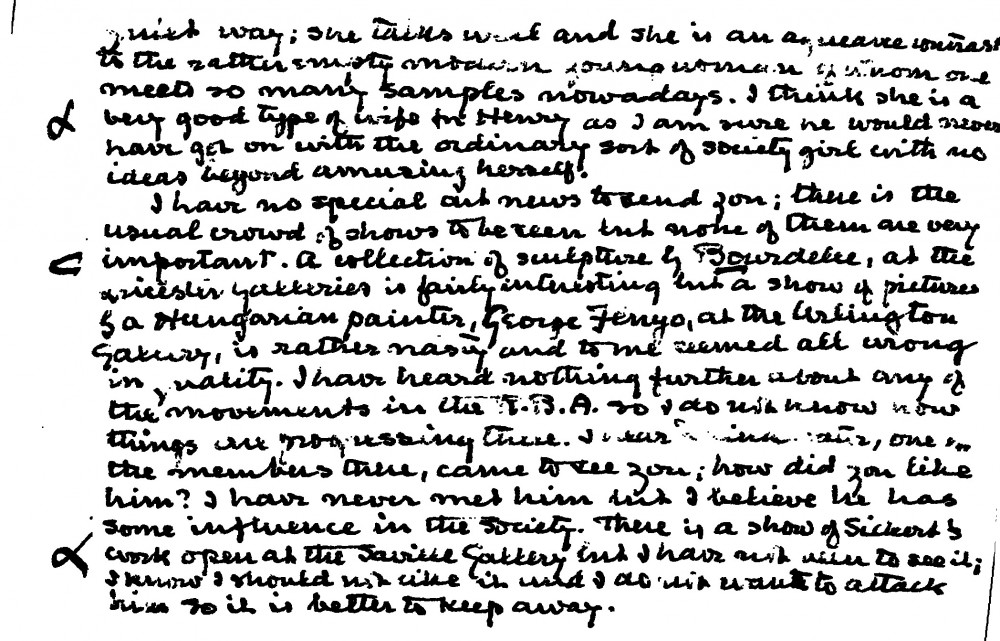 quiet way; she talks well and she is an agreeable contrast
to the rather empty modern young woman of whom one
meets so many samples nowadays. I think she is a
very good type of wife for Henry as I am sure he would never
have got on with the ordinary sort of society girl with no
ideas beyond amusing herself.
I have no special art news to send you; there is the
usual crowd of shows to be seen but none of them are very
important. A collection of sculpture by Bourdelle, at the
Leicester Galleries is fairly interesting but a show of pictures
by a Hungarian painter, George Fenyo, at the Arlington
Gallery, is rather nasty and to me seemed all wrong
in quality. I have heard nothing further about any of
the movements in the R.B.A. so I do not know how
things are progressing there. I hear, one of
the members there, came to see you; how did you like
him? I have never met him but I believe he has
some influence in the Society. There is a show of Sickert's
work open at the Saville Gallery but I have not been to see it;
I know I should not like it and I do not want to attack
him so it is better to keep away.